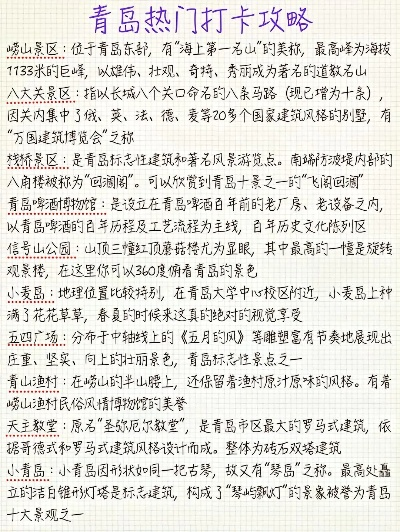 青岛热门打卡攻略
崂山景区：位于青岛东部，有“海上第一名山”的美称，最高峰为海拔
1133米的巨峰，以雄伟、壮观、奇特、秀丽成为著名的道教名山
八大关景区：指以长城八个关口命名的八条马路（现已增为十条），
因关内集中了俄、英、法、德、麦等20多个国家建筑风格的别墅，有
“万国建筑博览会”之称
栈桥景区：是青岛标志性建筑和著名风景游览点。南端防波堤内部的
八角楼被称为“回澜阁”。可以欣赏到青岛十景之一的“飞阁回澜”
青岛啤酒博物馆：是设立在青岛啤酒百年前的老厂房、老设备之内，
以青岛啤酒的百年历程及工艺流程为主线，百年历史文化陈列区
信号山公园：山顶三幢红顶蘑菇楼尤为显眼，其中最高的一幢是旋转
观景楼，在这里你可以360度俯看青岛的景色
小麦岛：地理位置比较特别，在青岛大学中心校区附近，小麦岛上种
满了花花草草，春夏的时候来这真的绝对的视觉享受
五四广场：分布于中轴线上的《五月的风》等雕塑富有节奏地展现出
庄重、坚实、向上的壮丽景色，青岛标志性景点之一
青山渔村：在崂山的半山腰上，还保留着渔村原汁原味的风格。有着
崂山渔村民俗风情博物馆的美誉
天主教堂：原名“圣弥厄尔教堂”，是青岛市区最大的罗马式建筑，依
据哥德式和罗马式建筑风格设计而成。整体为砖石双塔建筑
小青岛：小青岛因形状如同一把古琴，故又有“琴岛”之称。最高处矗
立的洁白锥形灯塔是标志建筑，构成了“琴屿飘灯”的景象被誉为青岛
十大景观之一